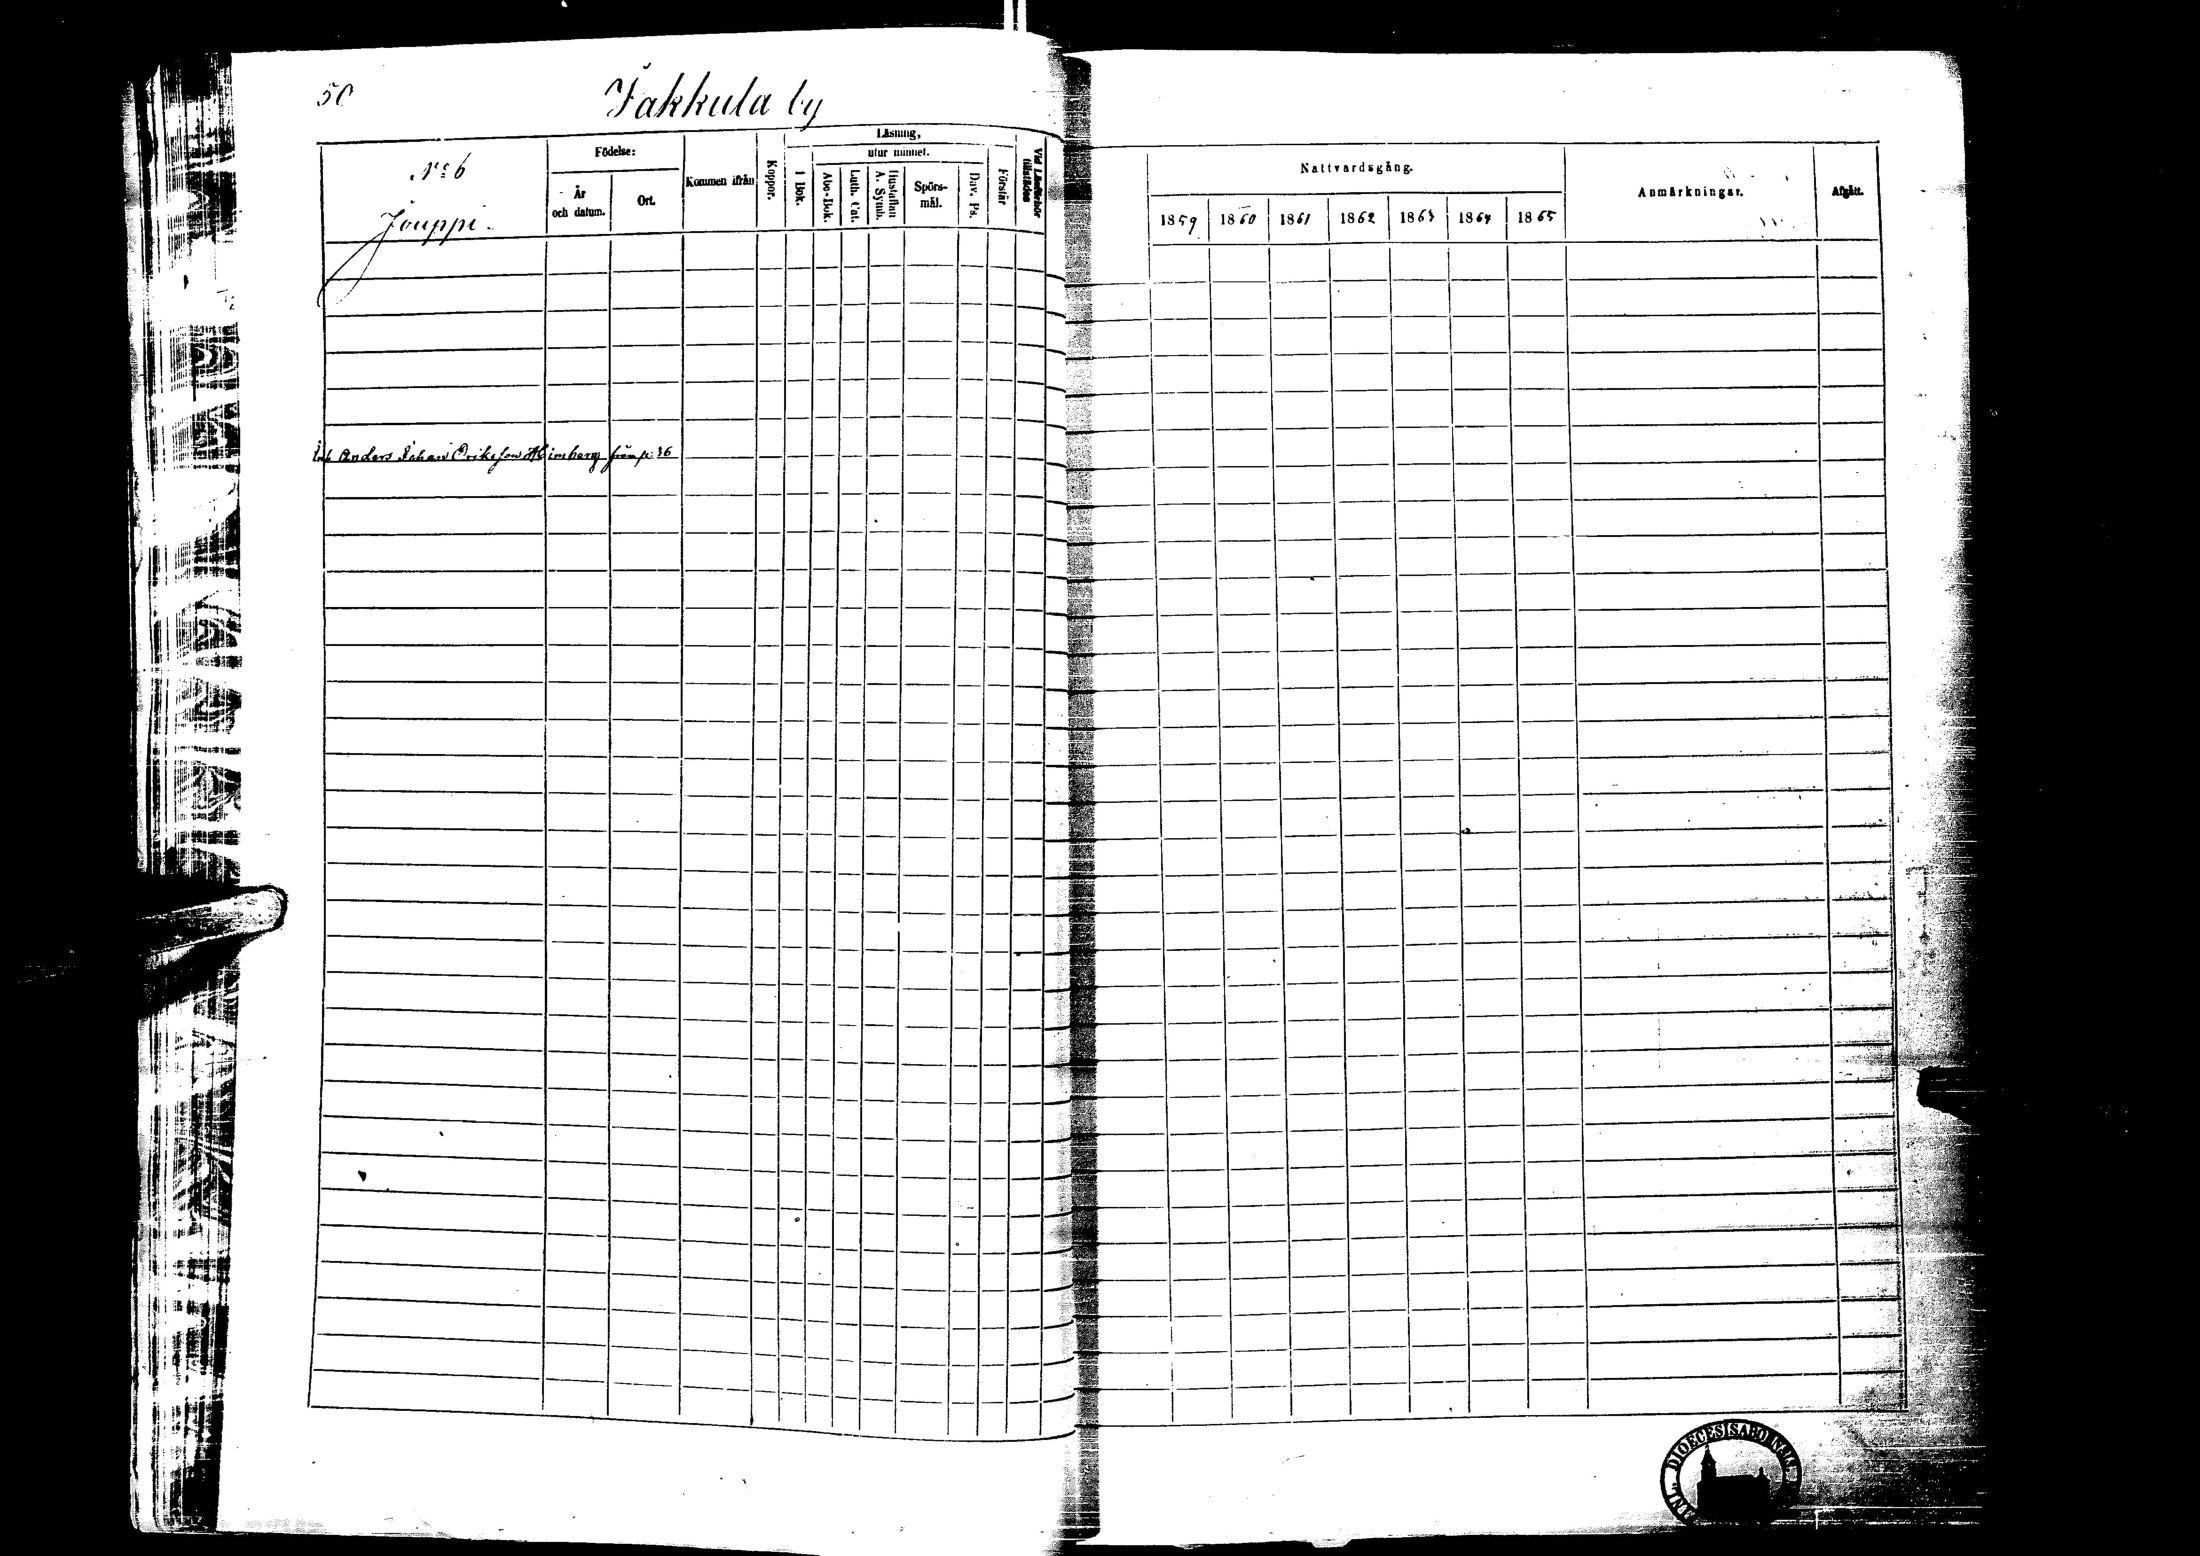 50
Jakkula by
No 6
Jouppi.
Födelse:
År
och datum.
Ort.
Kommen ifrån
Koppor.
Läsning,
utur minnet.
I Bok.
Abc-Bok.
Luth. Cat.
Hustaflan
A. Symb.
Spörs-
mål.
Dav. Ps.
Förstår
Vid Läseförhör
tillstädes
Inh. Anders Johan Eriksson från p. 36
Nattvardsgång.
1859 1860 1861 1862 1863 1864 1865
Anmärkningar.
Afgått.
DIOECESIS ABOENSIS